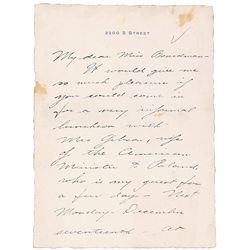 2300 S STREET
My dear Miss Boardman -
It would give me
so much pleasure if
you would come in
for a very informal
luncheon with
Mrs Gibson, wife
of the American
Minister to Poland,
who is my guest for
a few days - next
Monday December
seventeenth - at